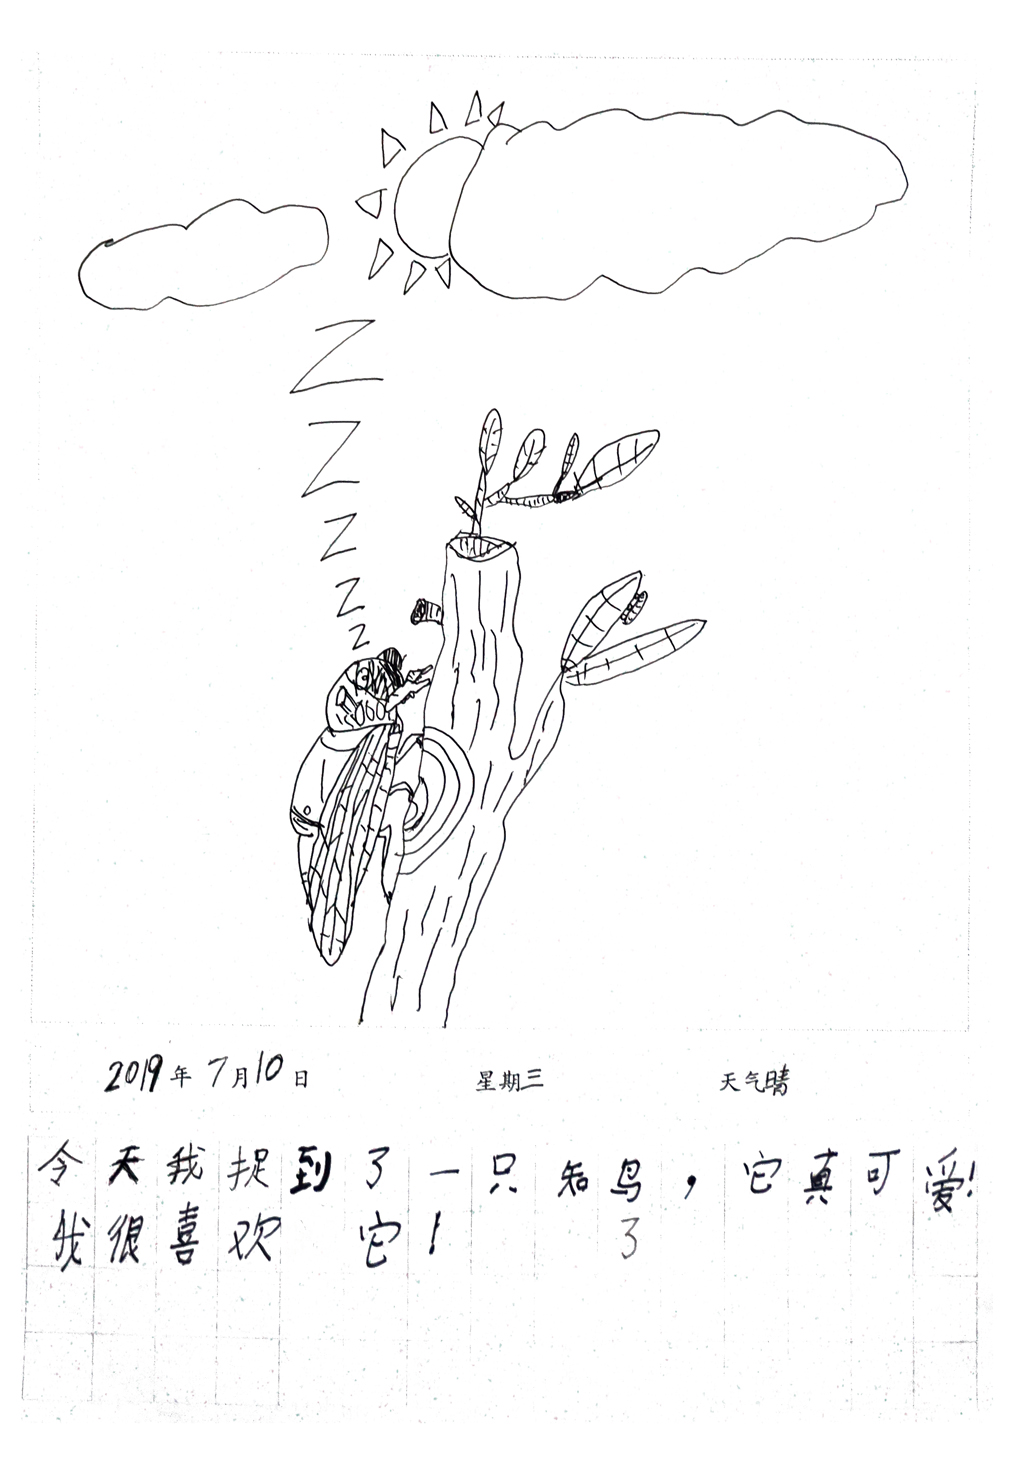 Z
Z
Z
Z
Z
2019年7月10日 星期三 天气晴
今天我捉到了一只知鸟，它真可爱！
我很喜欢 它！ 3